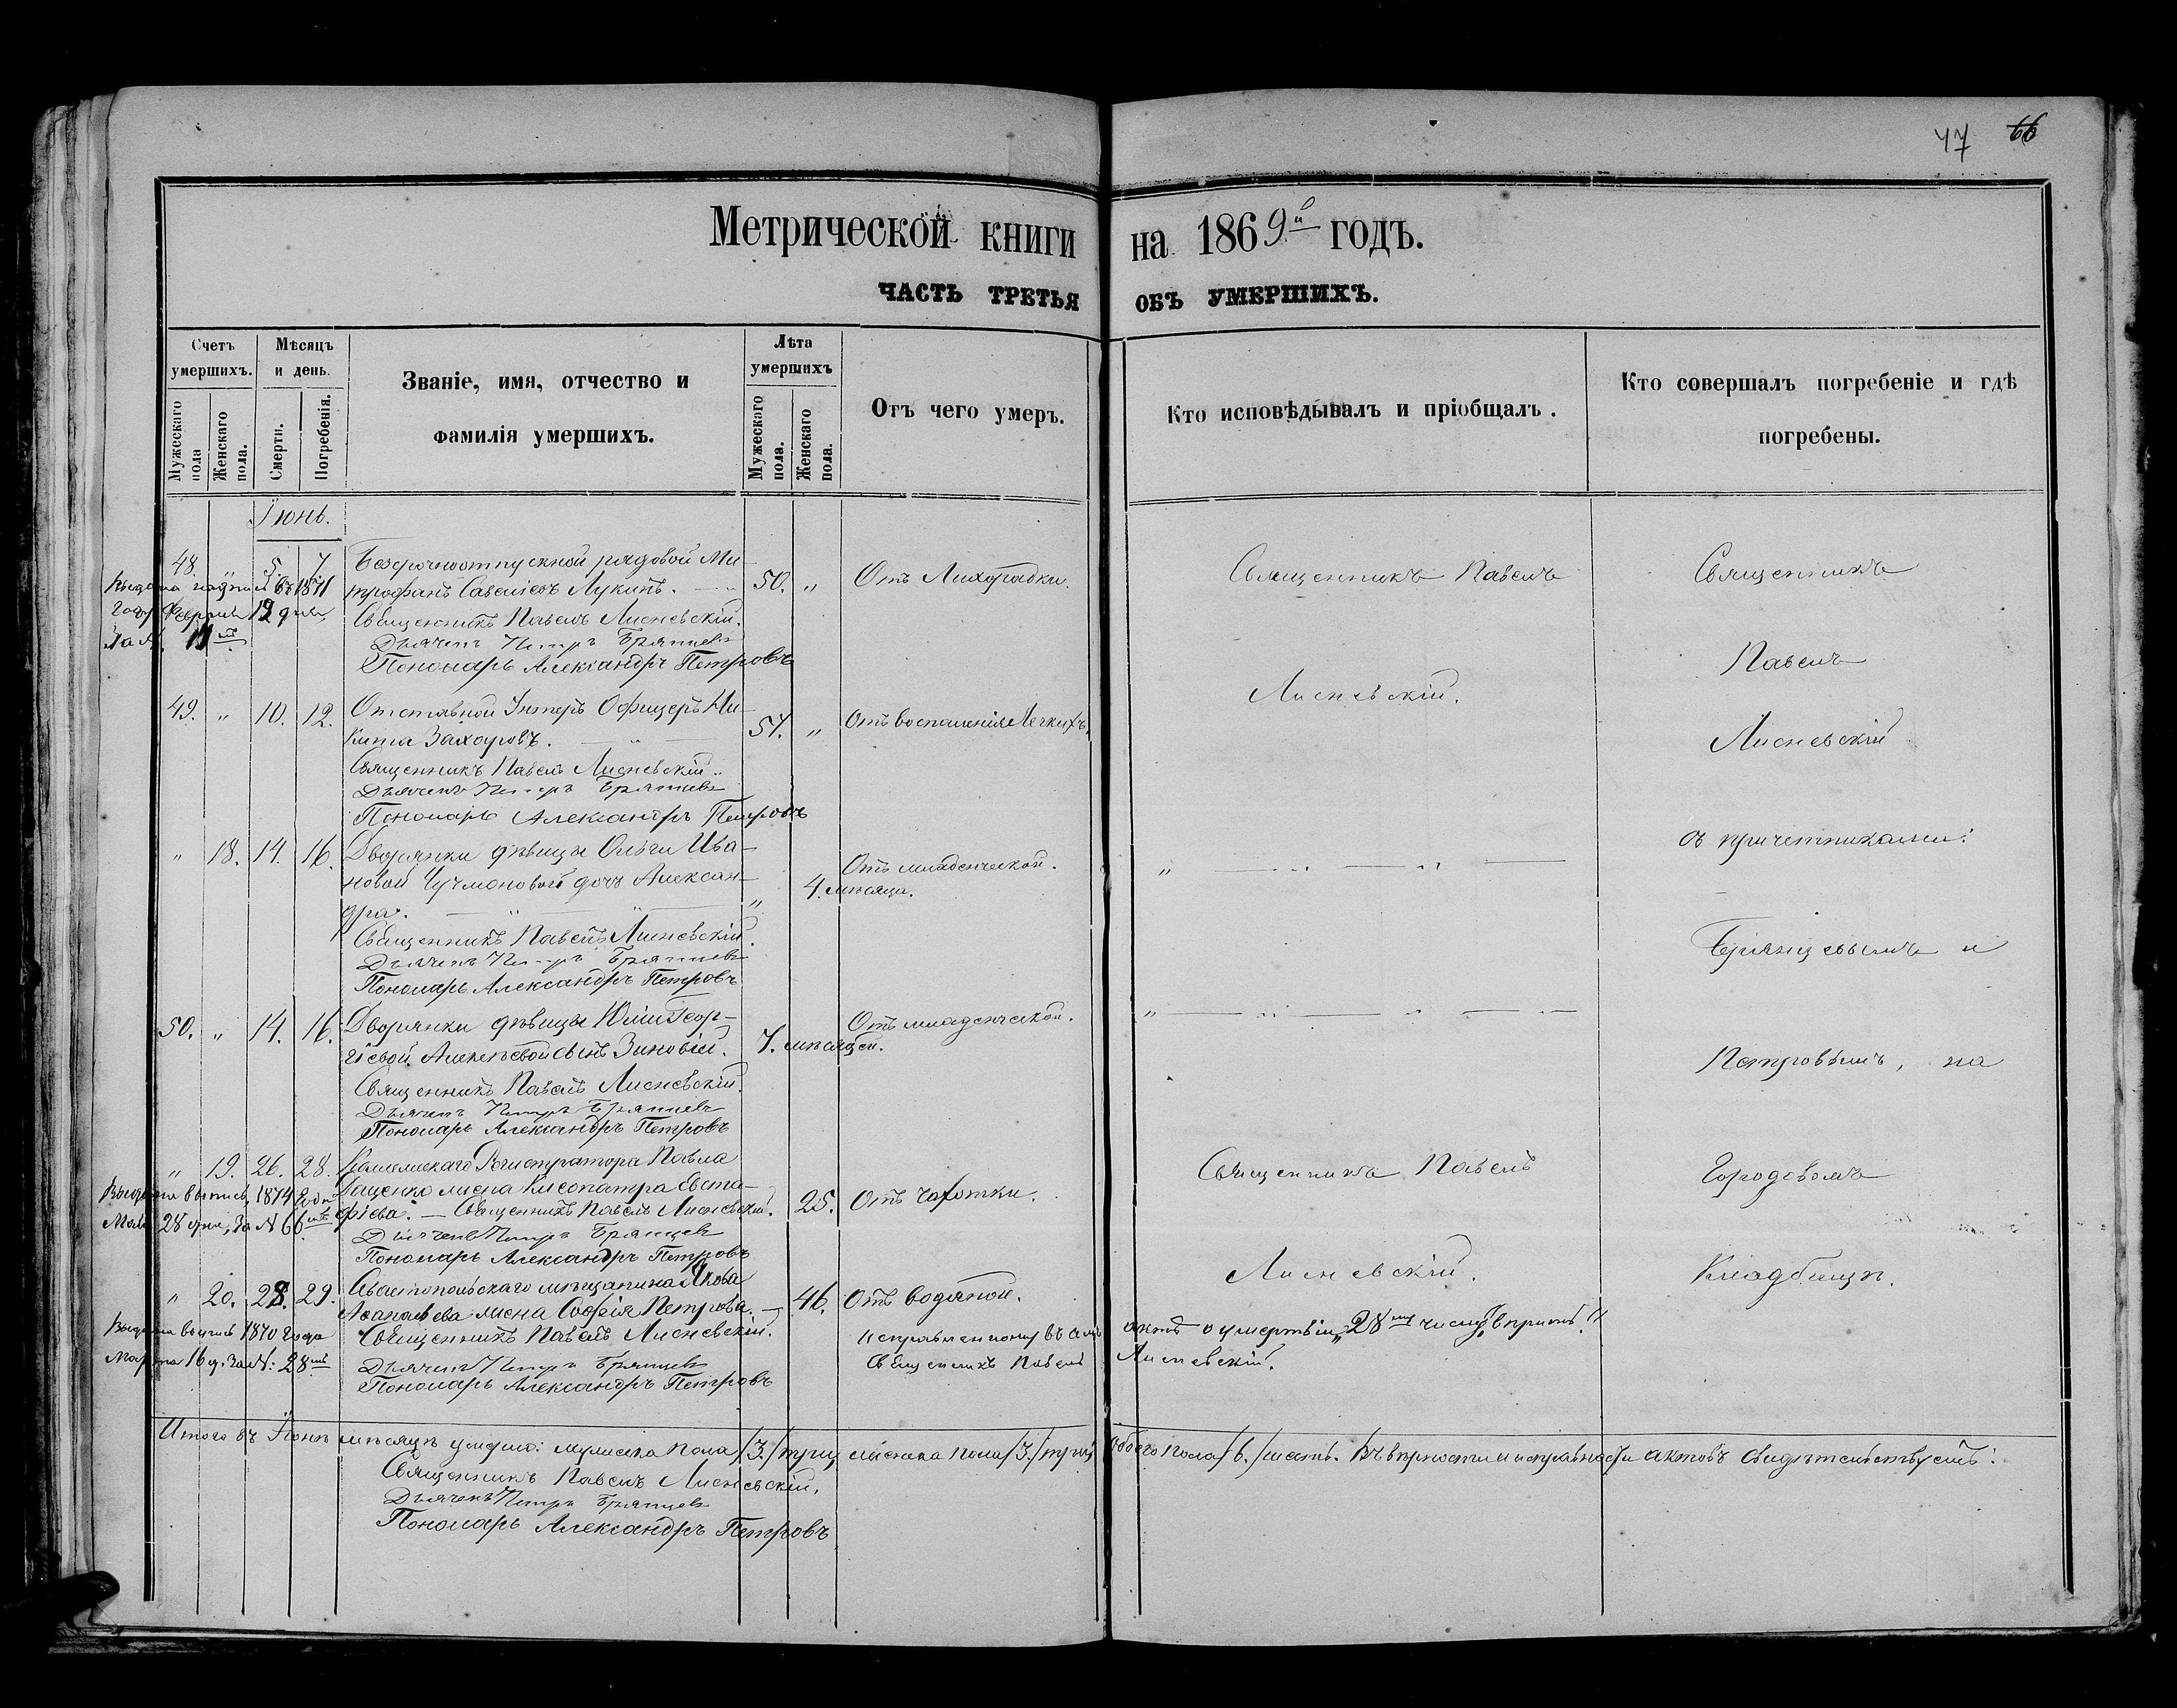 47 66
Метрической книги на 1869й годъ.
ЧАСТЬ ТРЕТЬЯ ОБЪ УМЕРШИХЪ.
Счетъ умершихъ.
Мужескаго пола
Женскаго пола.
Мѣсяцъ и день.
Смерти.
Погребенія.
Званіе, имя, отчество и
фамилія умершихъ.
Лѣта умершихъ
Мужескаго пола.
Женскаго пола.
Отъ чего умеръ.
Кто исповѣдывалъ и пріобщалъ.
Кто совершалъ погребеніе и гдѣ
погребены.
Іюнь.
48. " 5. 7. Безсрочноотпускной рядовой Ми-
трофанъ Савельевъ Лукинъ. 50. " Отъ Лихорадки.
въ 1871
году Февраля 19 дня
за №
Священникъ Павелъ Лисневскій.
Дьячекъ Петръ Брянцевъ
Пономарь Александръ Петровъ
49. " 10. 12. Отставной Унтеръ Офицеръ Ни-
кита Захаровъ. 57. " Отъ воспаленія Легкихъ.
Священникъ Павелъ Лисневскій.
Дьячекъ Петръ Брянцевъ
Пономарь Александръ Петровъ
" 18. 14. 16. Дворянки дѣвицы Ольги Ива-
новой дочь Алексан-
дра. " 4. мѣсяца. Отъ младенческой.
Священникъ Павелъ Лисневскій.
Дьячекъ Петръ Брянцевъ
Пономарь Александръ Петровъ
50. " 14. 16. Дворянки дѣвицы Юліи Геор-
гіевой сынъ Зиновій. 7. мѣсяцей. Отъ младенческой.
Священникъ Павелъ Лисневскій.
Дьячекъ Петръ Брянцевъ
Пономарь Александръ Петровъ
" 19. 26. 28. Коллежскаго Регистратора Павла
Даценко жена Клеопатра Евста-
фіева. — Священникъ Павелъ Лисневскій. 25. Отъ чахотки.
Выдана выпись 1874 года
Мая 28 дня, за № 66
Дьячекъ Петръ Брянцевъ
Пономарь Александръ Петровъ
" 20. 28. 29. Севастопольскаго мѣщанина Якова
жена Софія Петрова. — 46. Отъ водяной.
Выдана выпись 1870 года
Марта 16 д. за №: 28мъ
Священникъ Павелъ Лисневскій.
Дьячекъ Петръ Брянцевъ
Пономарь Александръ Петровъ
Исправленному въ семъ актѣ о умертвіи "28му числу" вѣрить.
Священникъ Павелъ Лисневскій.
Священникъ Павелъ
Лисневскій.
Священникъ Павелъ
Лисневскій.
Священникъ
Павелъ
Лисневскій
съ причетниками:
Брянцевымъ и
Петровымъ, на
Городовомъ
Кладбищѣ.
Итого въ Іюнѣ мѣсяцѣ умерло: мужеска пола /3./ три, женска пола /3./ три, обоего пола /6./ шесть. Въ вѣрности и исправности актовъ свидѣтельствуемъ:
Священникъ Павелъ Лисневскій.
Дьячекъ Петръ Брянцевъ
Пономарь Александръ Петровъ